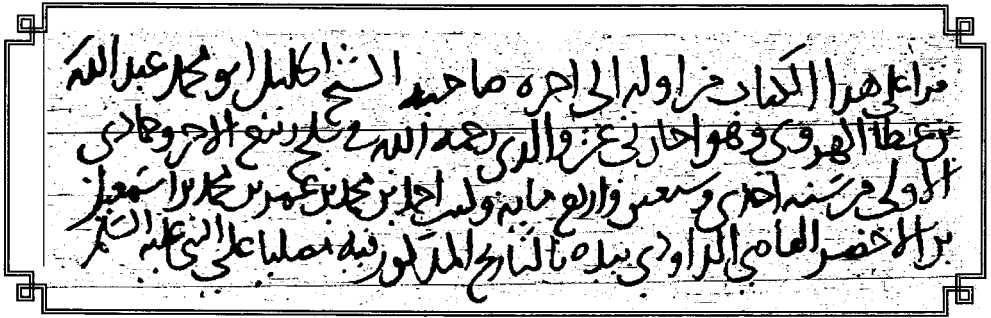 قرا علي هذا الكتاب من اوله الى اخره صاحبه الشيخ الجليل ابو محمد عبد الله
بن عطا الهروي وهو اجازني عن والدي رحمه الله في ربيع الاخر وجمادي
الاولى من سنه احدى وسبعين واربع مايه وكتب احمد بن محمد بن عمر بن محمد بن اسمعيل
بن الاخضر القاضي الداودي بيده بالتاريخ المذكور فيه مصليا على النبي عليه السلم